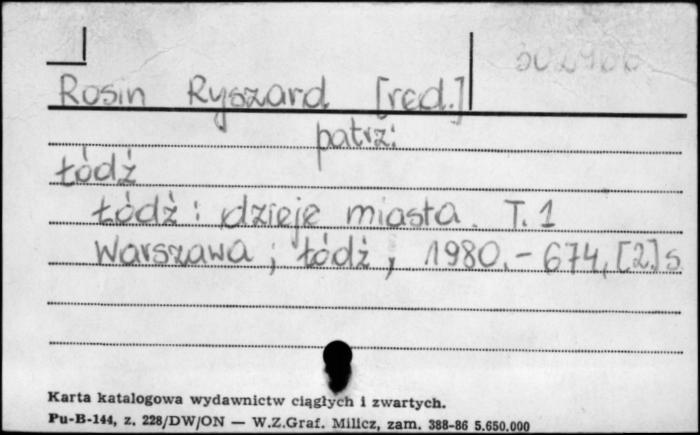 Rosin Ryszard [red.]
patrz:
Łódź
Łódź : dzieje miasta. T. 1
Warszawa ; Łódź, 1980. - 674, [2] s.
Karta katalogowa wydawnictw ciągłych i zwartych.
Pu-B-144, z. 228/DW/ON — W.Z.Graf. Milicz, zam. 388-86 5.650.000